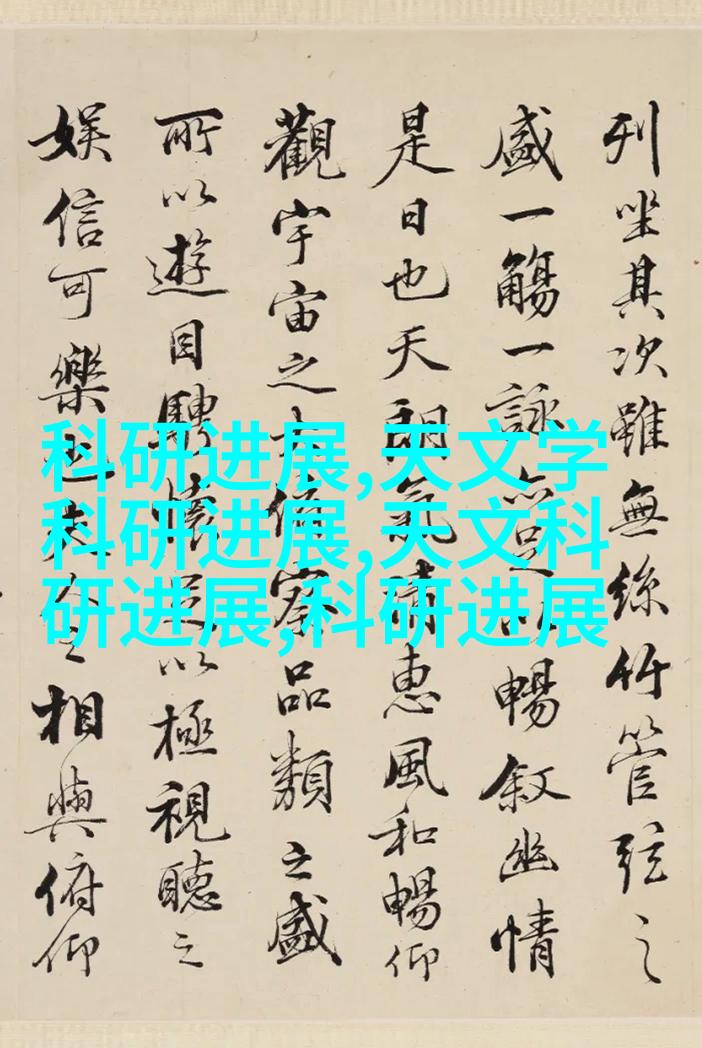 列坐其次雖無絲竹管弦之
盛一觴一詠亦足以暢叙幽情
是日也天朗氣清惠風和暢仰
觀宇宙之大俯察品類之盛
所以遊目騁懷足以極視聽之
娛信可樂也夫人之相與俯仰
科研进展,天文学
科研进展,天文科
研进展,科研进展